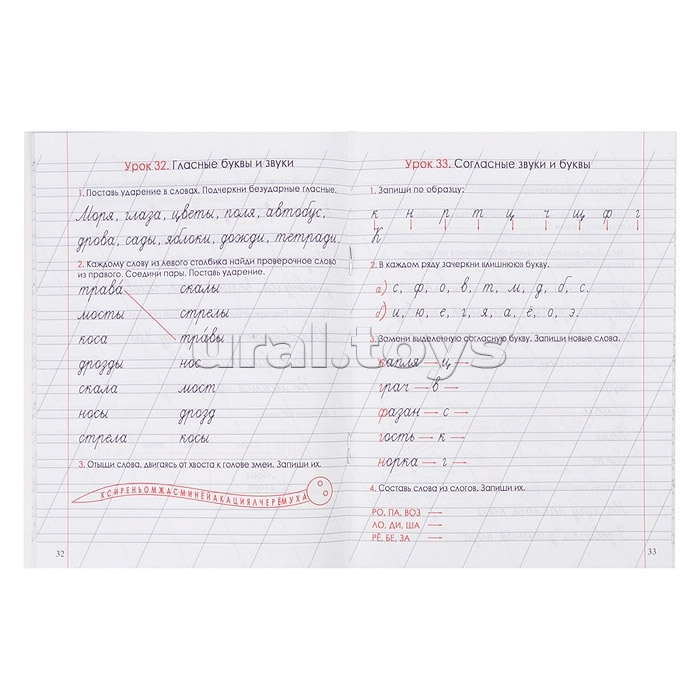 Урок 32. Гласные буквы и звуки
1. Поставь ударение в словах. Подчеркни безударные гласные.
Моря, глаза, цветы, поля, автобус,
дрова, сады, яблоки, дожди, тетради.
2. Каждому слову из левого столбика найди проверочное слово
из правого. Соедини пары. Поставь ударение.
трава́ скалы
мосты стрелы
коса тра́вы
дрозды нос
скала мост
носы дрозд
стрела косы
3. Отыщи слова, двигаясь от хвоста к голове змеи. Запиши их.
КСИРЕНЬОМЖАСМИНЕЙАКАЦИЯЛЧЕРЁМУХА
32
Урок 33. Согласные звуки и буквы
1. Запиши по образцу:
к н р т щ ч щ ф г
К
2. В каждом ряду зачеркни «лишнюю» букву.
а) с, ф, о, в, т, м, д, б, с.
б) и, ю, е, г, я, а, ё, о, з.
3. Замени выделенную согласную букву. Запиши новые слова.
капля → ц →
грач → в →
фазан → с →
гость → к →
норка → г →
4. Составь слова из слогов. Запиши их.
РО, ПА, ВОЗ →
ЛО, ДИ, ША →
РЁ, БЕ, ЗА →
33
ural.toys